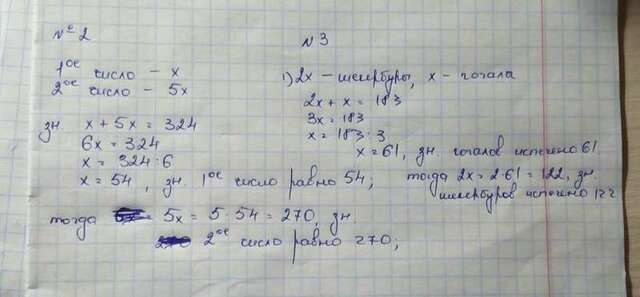 № 2
1ое число – x
2ое число – 5x
зн. x + 5x = 324
6x = 324
x = 324:6
x = 54, зн. 1ое число равно 54;
тогда 5x = 5·54 = 270, зн.
2ое число равно 270;
№ 3
1) 2x – шекербуры, x – гогала
2x + x = 183
3x = 183
x = 183:3
x = 61, зн. гогалов испечено 61.
тогда 2x = 2·61 = 122, зн.
шекербуров испечено 122